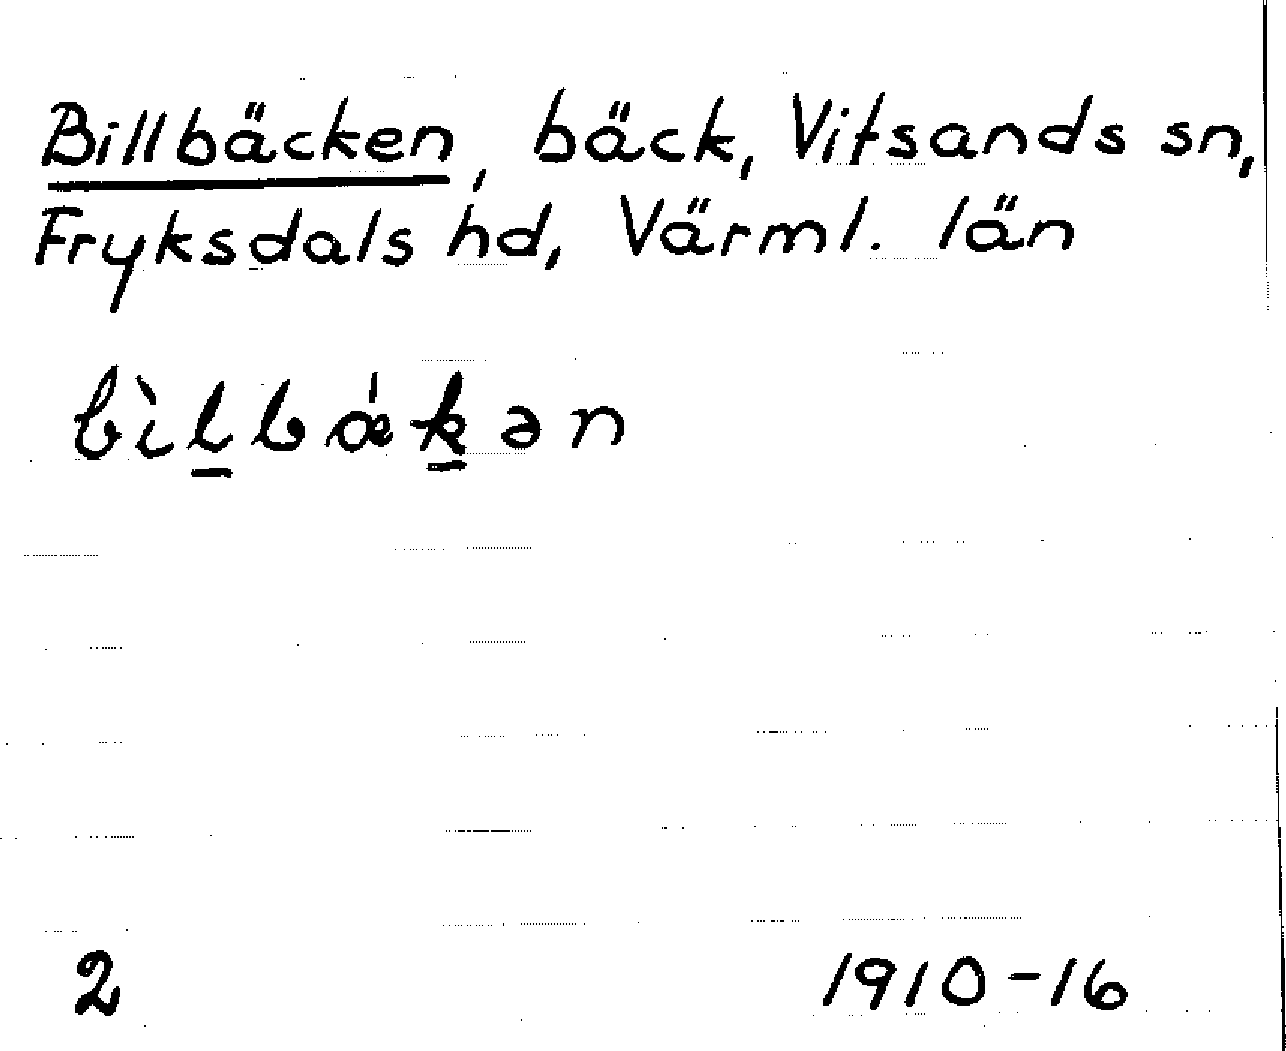 Billbäcken, bäck, Vitsands sn,
Fryksdals hd, Värml. län
bìl̲bǽk̲ən
2 1910-16